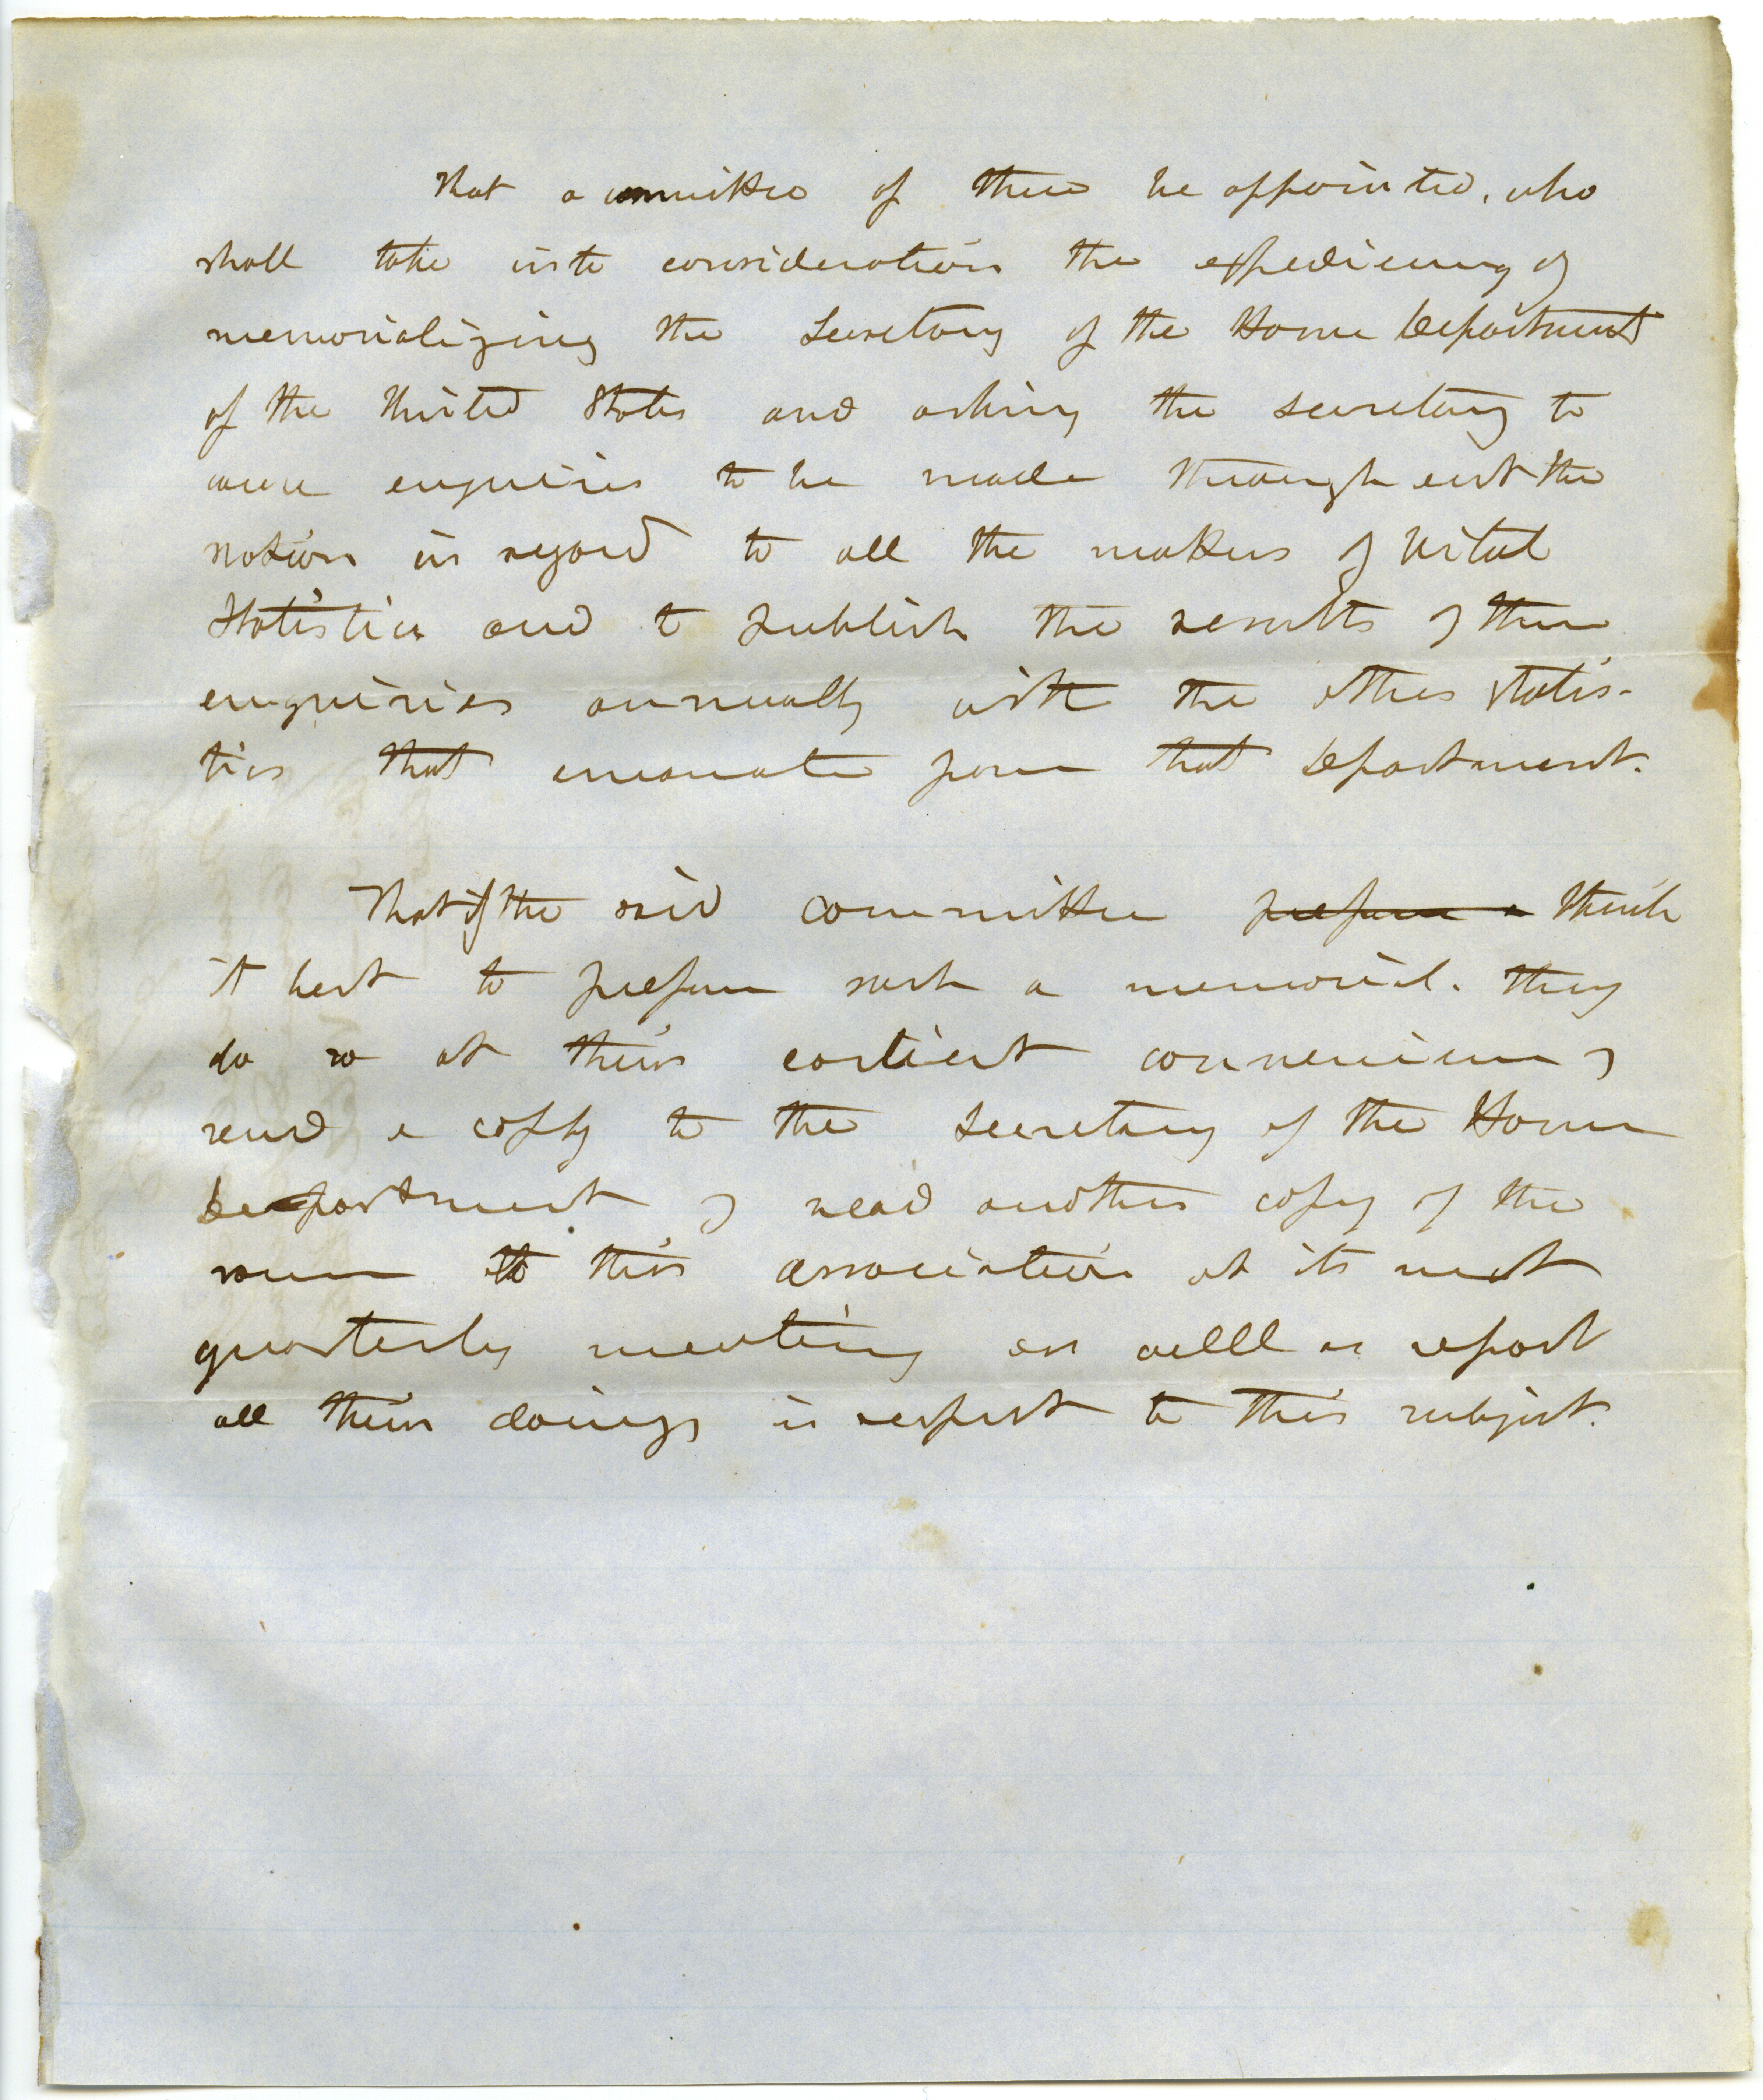 That a committee of three be appointed, who
shall take into consideration the expediency of
memorializing the Secretary of the Home Department
of the United States and asking the secretary to
cause enquiries to be made through out the
nation in regard to all the matters of Vital
Statistics and to publish the results of these
enquiries annually with the other statis-
tics that emanate from that Department.
That if the said committee prepare a think
it best to prepare such a memorial. they
do so at their earliest convenience &
send a copy to the Secretary of the Home
Department & read another copy of the
same to this association at its next
quarterly meeting as welll as report
all their doings in respect to this subject.